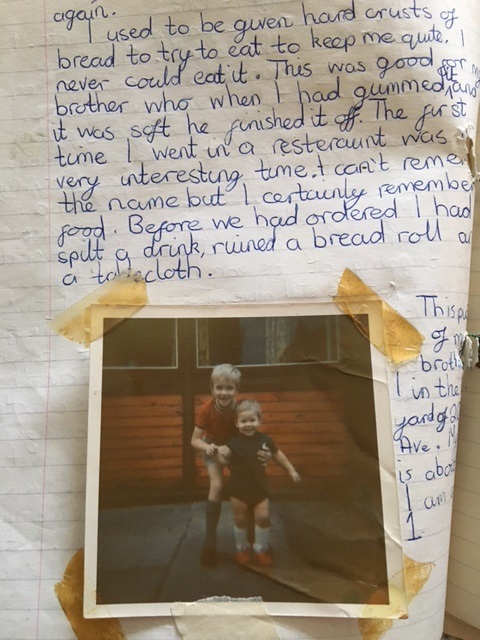 again.
I used to be given hard crusts of
bread to try to eat to keep me quite. I
never could eat it. This was good for
brother who when I had gummed it and
it was soft he finished it off. The first
time I went in a resteraunt was
very interesting time. I can't reme
the name but I certainly remember
food. Before we had ordered I had
spilt a drink, ruined a bread roll
a cloth.
This
of
broth
I in the
yard of
Ave.
is abo
I am
1